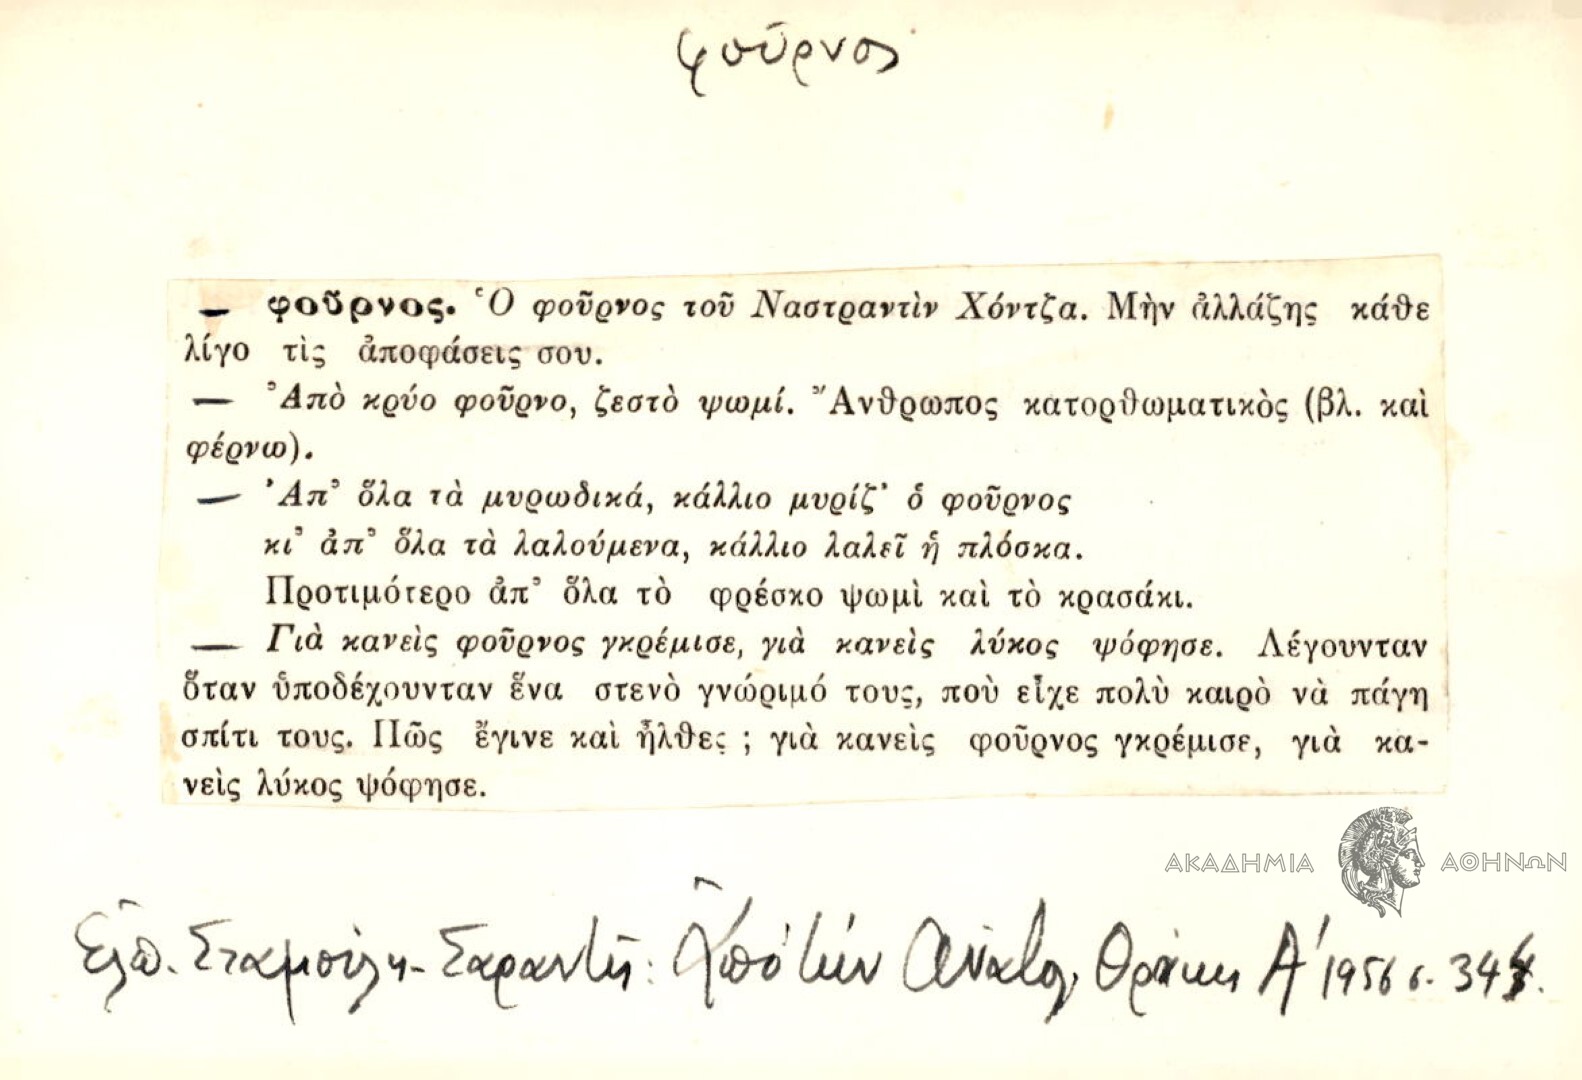 φοῦρνος
— φοῦρνος. Ὁ φοῦρνος τοῦ Ναστραντὶν Χόντζα. Μὴν ἀλλάζης κάθε
λίγο τὶς ἀποφάσεις σου.
— Ἀπὸ κρύο φοῦρνο, ζεστὸ ψωμί. Ἄνθρωπος κατορθωματικὸς (βλ. καὶ
φέρνω).
— Ἀπ' ὅλα τὰ μυρωδικά, κάλλιο μυρίζ' ὁ φοῦρνος
κι' ἀπ' ὅλα τὰ λαλούμενα, κάλλιο λαλεῖ ἡ πλόσκα.
Προτιμότερο ἀπ' ὅλα τὸ φρέσκο ψωμὶ καὶ τὸ κρασάκι.
— Γιὰ κανεὶς φοῦρνος γκρέμισε, γιὰ κανεὶς λύκος ψόφησε. Λέγουνταν
ὅταν ὑποδέχουνταν ἕνα στενὸ γνώριμό τους, ποὺ εἶχε πολὺ καιρὸ νὰ πάγη
σπίτι τους. Πῶς ἔγινε καὶ ἦλθες ; γιὰ κανεὶς φοῦρνος γκρέμισε, γιὰ κα-
νεὶς λύκος ψόφησε.
ΑΚΑΔΗΜΙΑ ΑΘΗΝΩΝ
Ἐλπ. Σταμούλη-Σαραντῆ: Ἀπὸ τὴν Ἀνατολ. Θράκη Α' 1956 σ.